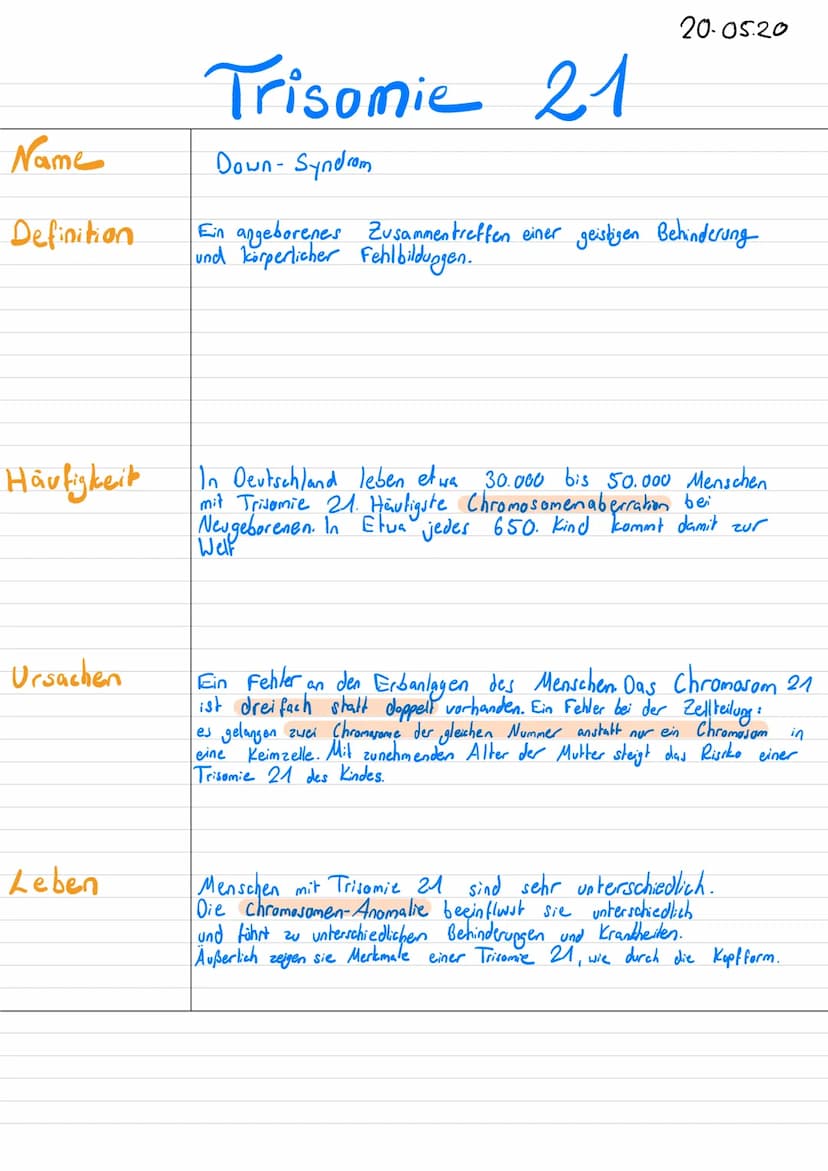 20.05.20
Trisomie 21
Name
Down-Syndrom
Definition
Ein angeborenes Zusammentreffen einer geistigen Behinderung
und körperlicher Fehlbildungen.
Häufigkeit
In Deutschland leben etwa 30.000 bis 50.000 Menschen
mit Trisomie 21. Häufigste Chromosomenaberration bei
Neugeborenen. In Etwa jedes 650. Kind kommt damit zur
Welt
Ursachen
Ein Fehler an den Erbanlagen des Menschen. Das Chromosom 21
ist dreifach statt doppelt vorhanden. Ein Fehler bei der Zellteilung:
es gelangen zwei Chromosome der gleichen Nummer anstatt nur ein Chromosom in
eine Keimzelle. Mit zunehmenden Alter der Mutter steigt das Risiko einer
Trisomie 21 des Kindes.
Leben
Menschen mit Trisomie 21 sind sehr unterschiedlich.
Die Chromosomen-Anomalie beeinflusst sie unterschiedlich
und führt zu unterschiedlichen Behinderungen und Krankheiten.
Äußerlich zeigen sie Merkmale einer Trisomie 21, wie durch die Kopfform.